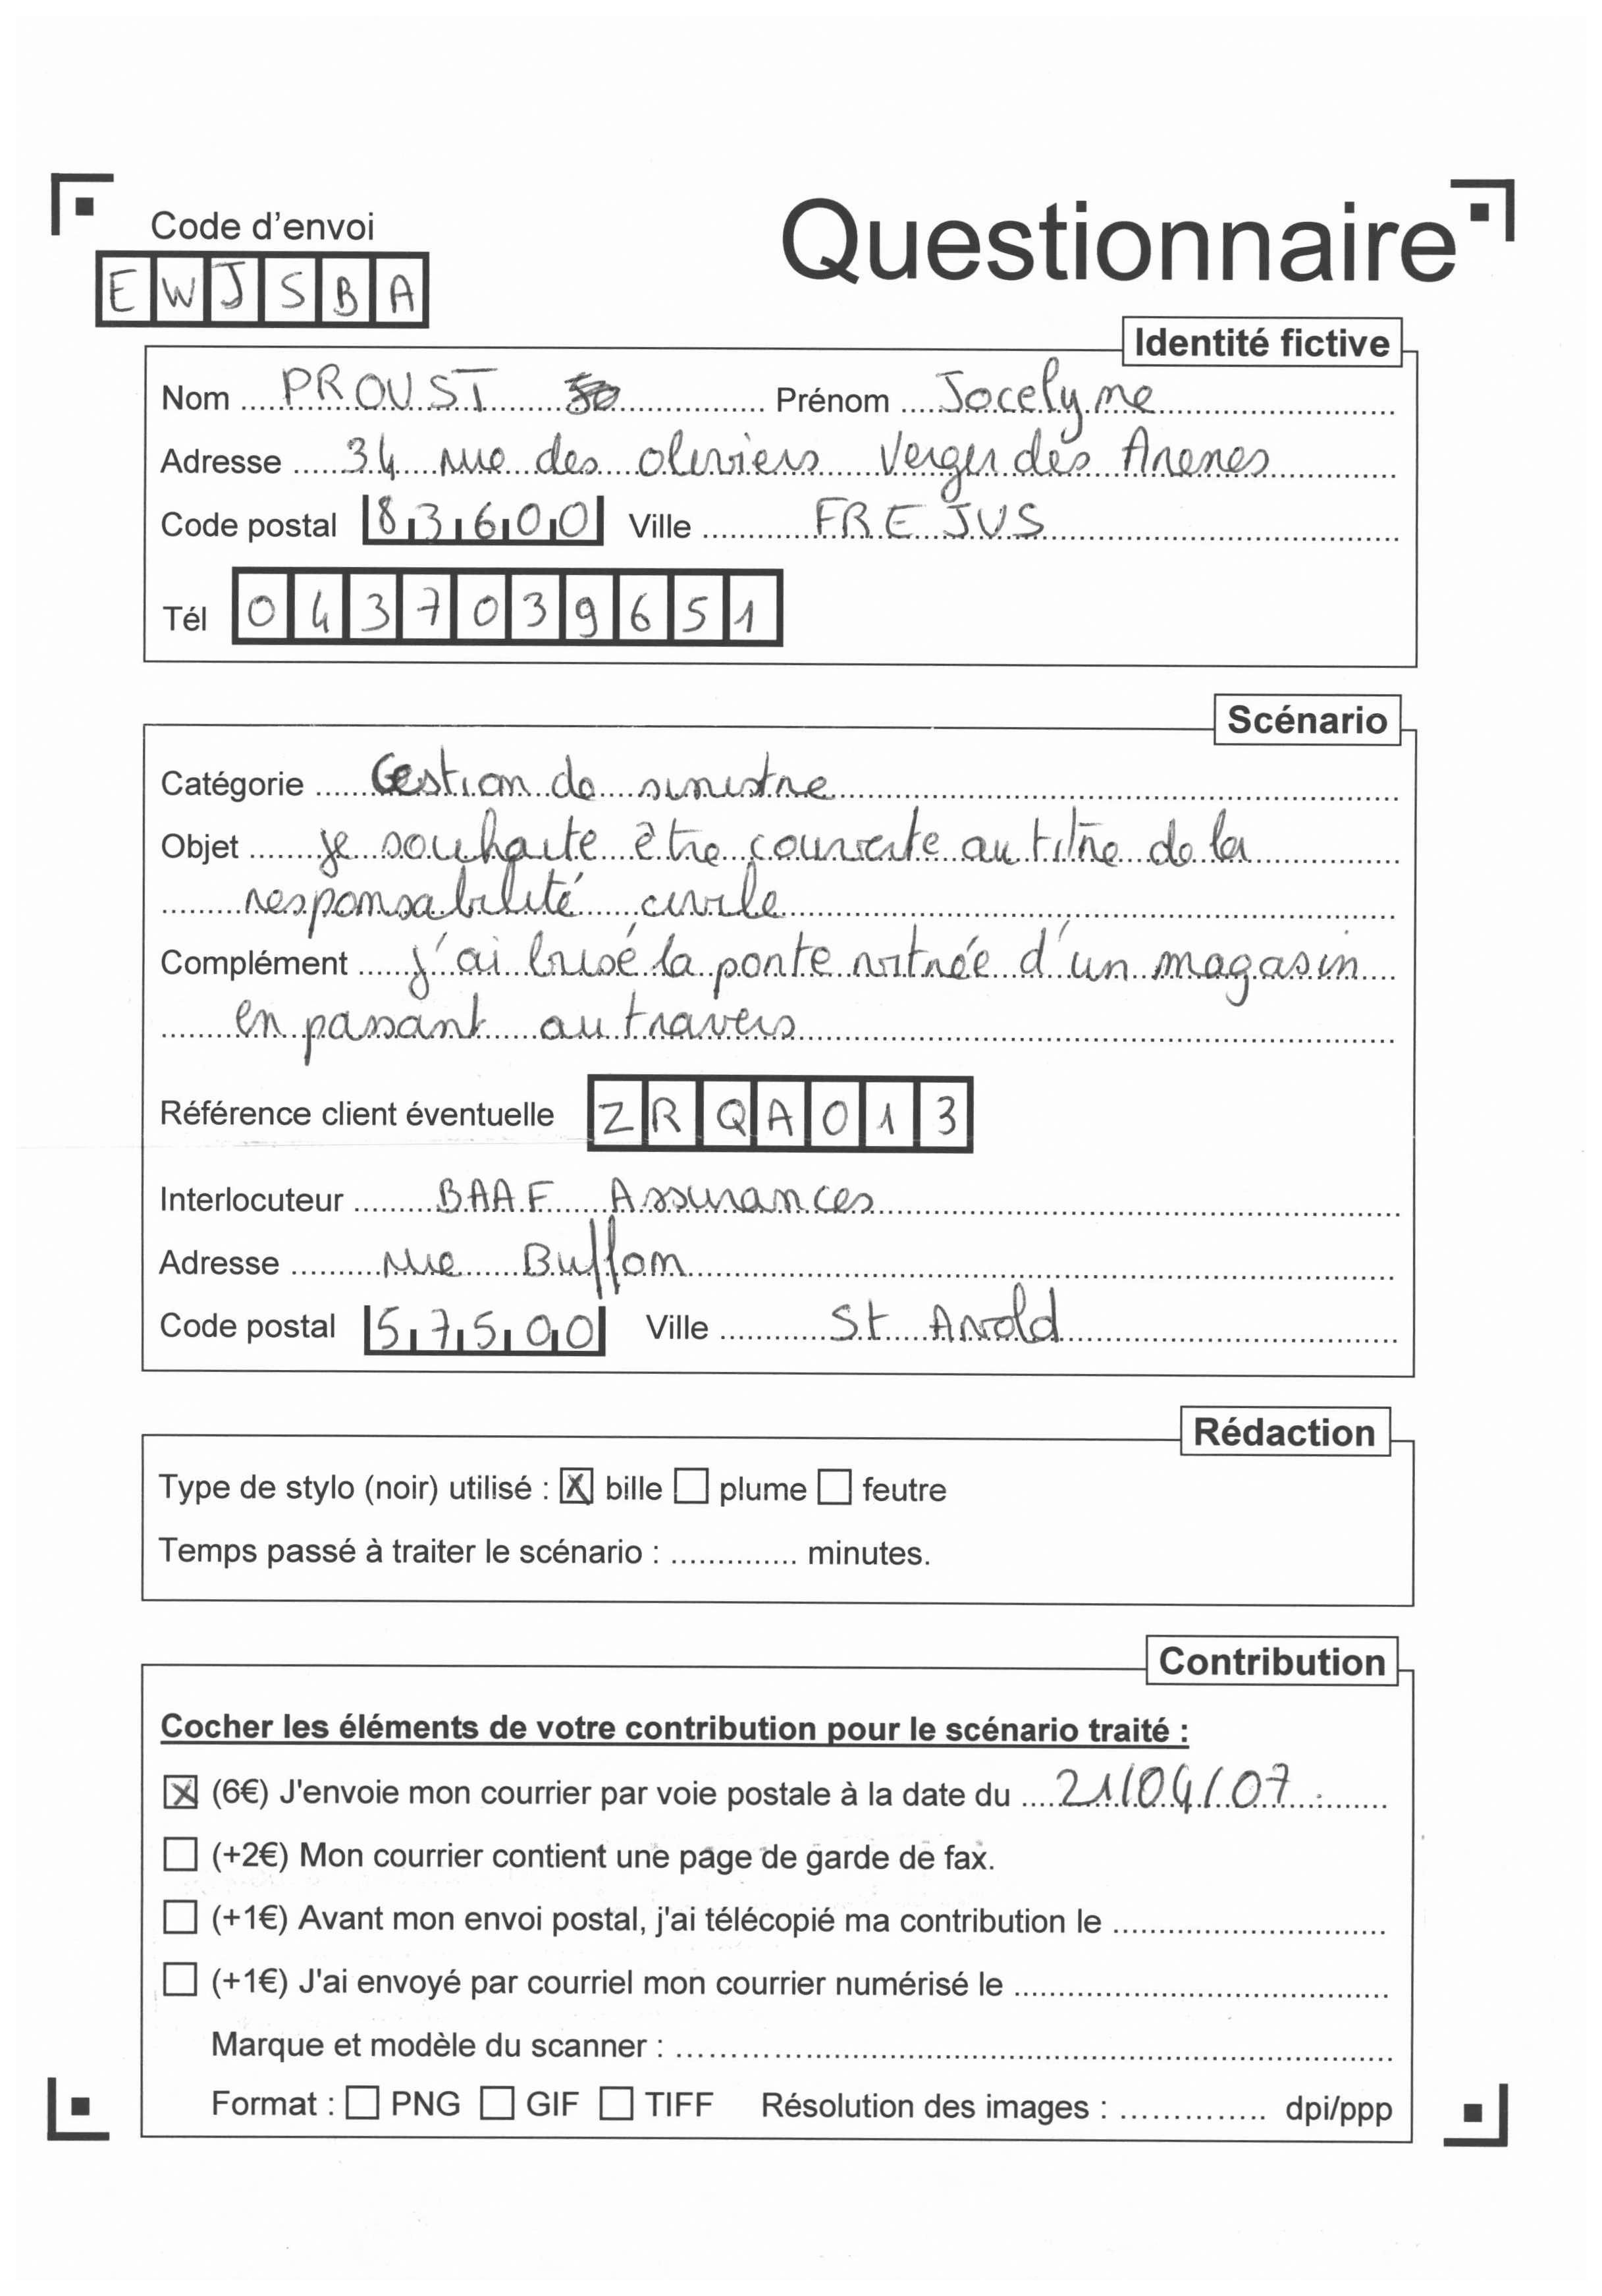 Code d'envoi
Questionnaire
E W J S B A
Identité fictive
Nom PROUST Prénom Jocelyne
Adresse 34 rue des oliviers Verger des Arenes
Code postal 83600 Ville FREJUS
Tél 0437039651
Scénario
Catégorie Gestion de sinistre
Objet je souhaite être couverte au titre de la
responsabilité civile
Complément j'ai brisé la porte vitrée d'un magasin
en passant au travers
Référence client éventuelle ZRQA013
Interlocuteur BAAF Assurances
Adresse rue Buffon
Code postal 57500 Ville St Avold
Rédaction
Type de stylo (noir) utilisé : ☒ bille ☐ plume ☐ feutre
Temps passé à traiter le scénario : .............. minutes.
Contribution
Cocher les éléments de votre contribution pour le scénario traité :
☒ (6€) J'envoie mon courrier par voie postale à la date du 21/04/07
☐ (+2€) Mon courrier contient une page de garde de fax.
☐ (+1€) Avant mon envoi postal, j'ai télécopié ma contribution le
☐ (+1€) J'ai envoyé par courriel mon courrier numérisé le
Marque et modèle du scanner :
Format : ☐ PNG ☐ GIF ☐ TIFF Résolution des images : .............. dpi/ppp